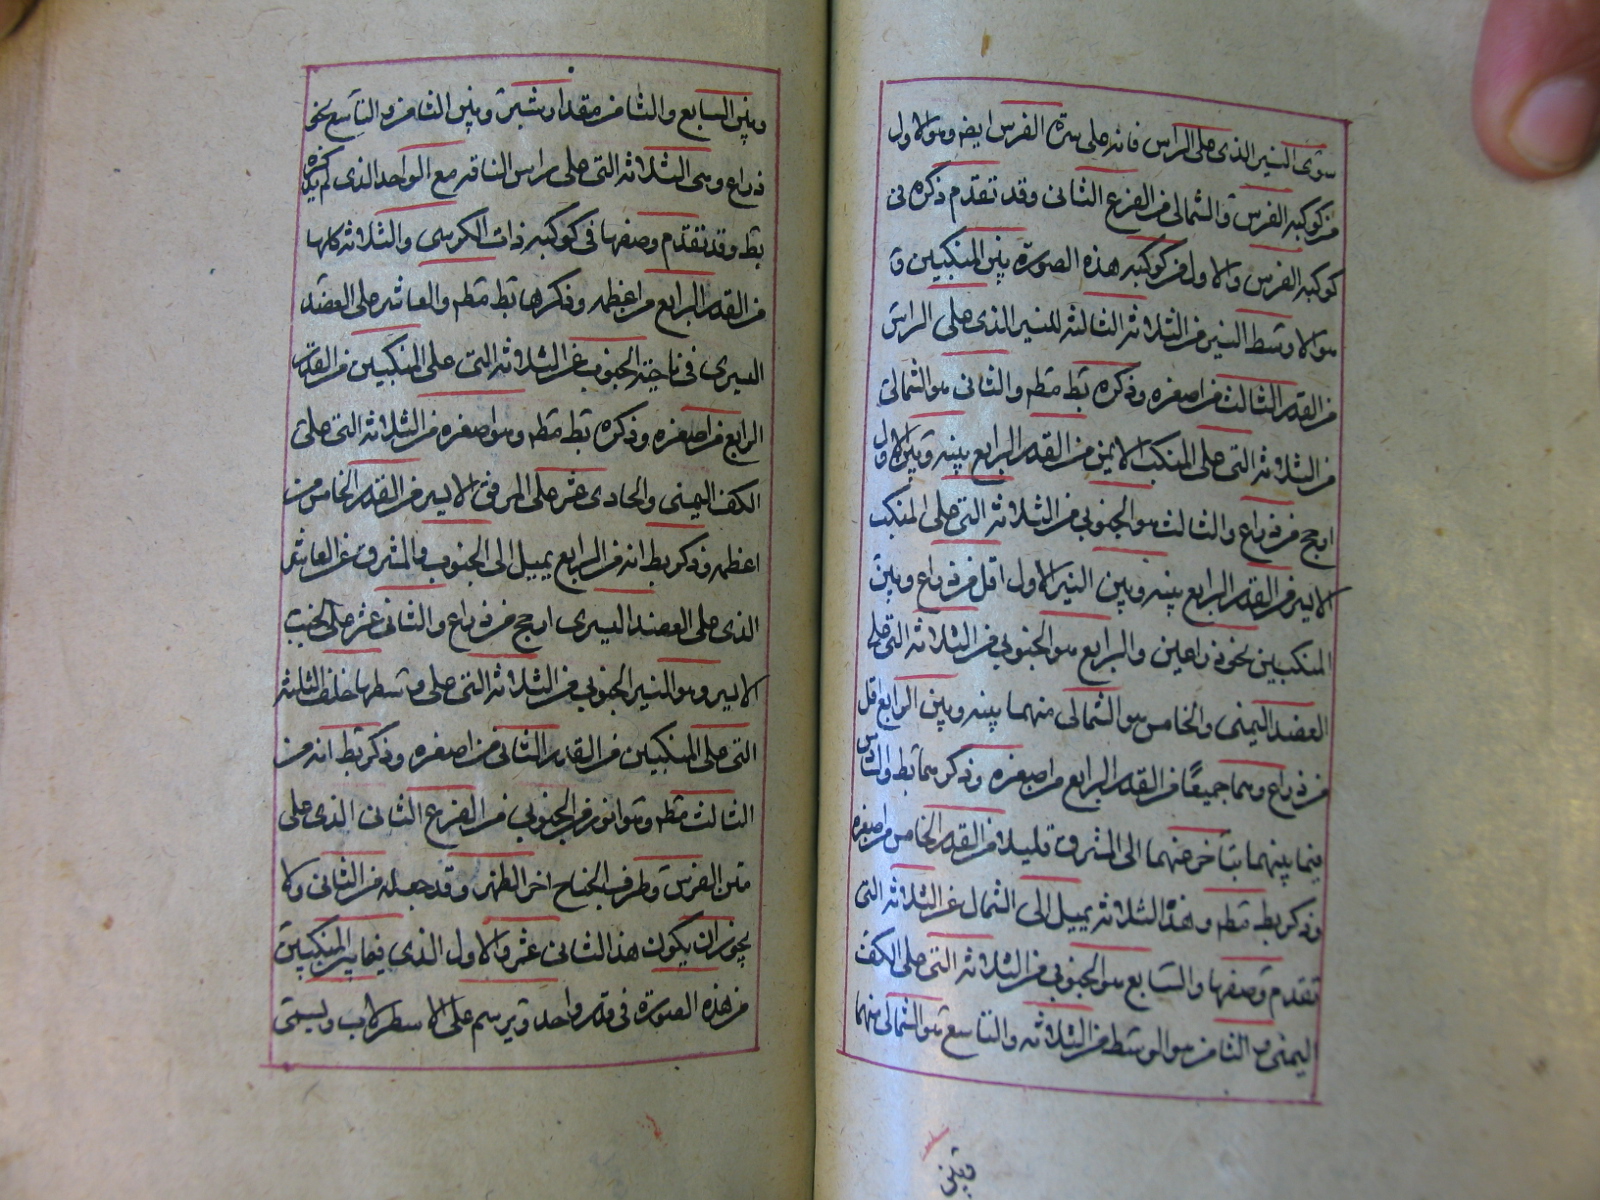 سوى النير الذى على الراس فانه على سرة الفرس ايضا وهو الاول
من كوكبة الفرس والشمالى من الفرع الثانى وقد تقدم ذكره فى
كوكبة الفرس والاول من كوكبه هذه الصورة بين المنكبين و
هو الاوسط النير من الثلاثة الثالثه للنير الذى على الراس
من القدر الثالث من اصغره وذكره بط مط والثانى هو الشمالى
من الثلاثه التى على المنكب الايمن من القدر الرابع بينه وبين الاول
ارجح من ذراع والثالث هو الجنوبي من الثلاثه التى على المنكب
الايسر من القدر الرابع بينه وبين النير الاول اقل من ذراع وبين
المنكبين نحو ذراعين والرابع هو الجنوبي من الثلاثه التى على
العضد اليمنى والخامس هو الشمالى منهما بينه وبين الرابع اقل
من ذراع وهما جميعًا من القدر الرابع من اصغره وذكرهما بط والسادس
فيما بينهما يتأخر عنهما الى المشرق قليلا من القدر الخامس من اصغره
وذكر بط مطه وهذه الثلاثه يميل الى الشمال عن الثلاثه التى
تقدم وصفها والسابع هو الجنوبي من الثلاثه التى على الكف
اليمنى والثامن هو الوسط من الثلاثه والتاسع هو الشمالى منهما
وبين
وبين السابع والثامن مقدار شبر وبين الثامن والتاسع نحو
ذراع وهى الثلاثه التى على راس الناقه مع الواحد الذى لم يذكره
بط وقد تقدم وصفها فى كوكبه ذات الكرسى والثلاثه كلها
من القدر الرابع من اعظمه وذكرها بط مطه والعاشر على العضد
اليسرى فى ناحية الجنوب عن الثلاثه التى على المنكبين من القدر
الرابع من اصغره وذكره بط مطه وهو اصغره من الثلاثه التى على
الكف اليمنى والحادى عشر على المرفق الايسر من القدر الخامس من
اعظمه وذكر بط انه من الرابع يميل الى الجنوب والمشرق عن العاشر
الذى على العضد اليسرى ارجح من ذراع والثانى عشر على الجنب
الايسر وهو النير الجنوبي من الثلاثه التى على وسطها خلف الثلثه
التى على المنكبين من القدر الثانى من اصغره وذكر بط انه من
الثالث مطه وهو انور من الجنوبي من الفرع الثانى الذى على
متن الفرس وطرف الجناح اخر الظهر وقد جعله من الثانى ولا
يجوز ان يكون هذا الثانى عشر والاول الذى فيما بين المنكبين
من هذه الصورة فى قدر واحد ويرسم على الاسطرلاب ويسمى